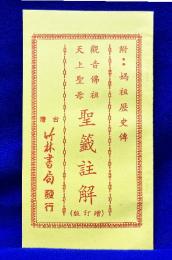 附：媽祖歷史傳
觀音佛祖
天上聖母
聖籤註解
(增訂版)
台灣
竹林書局發行